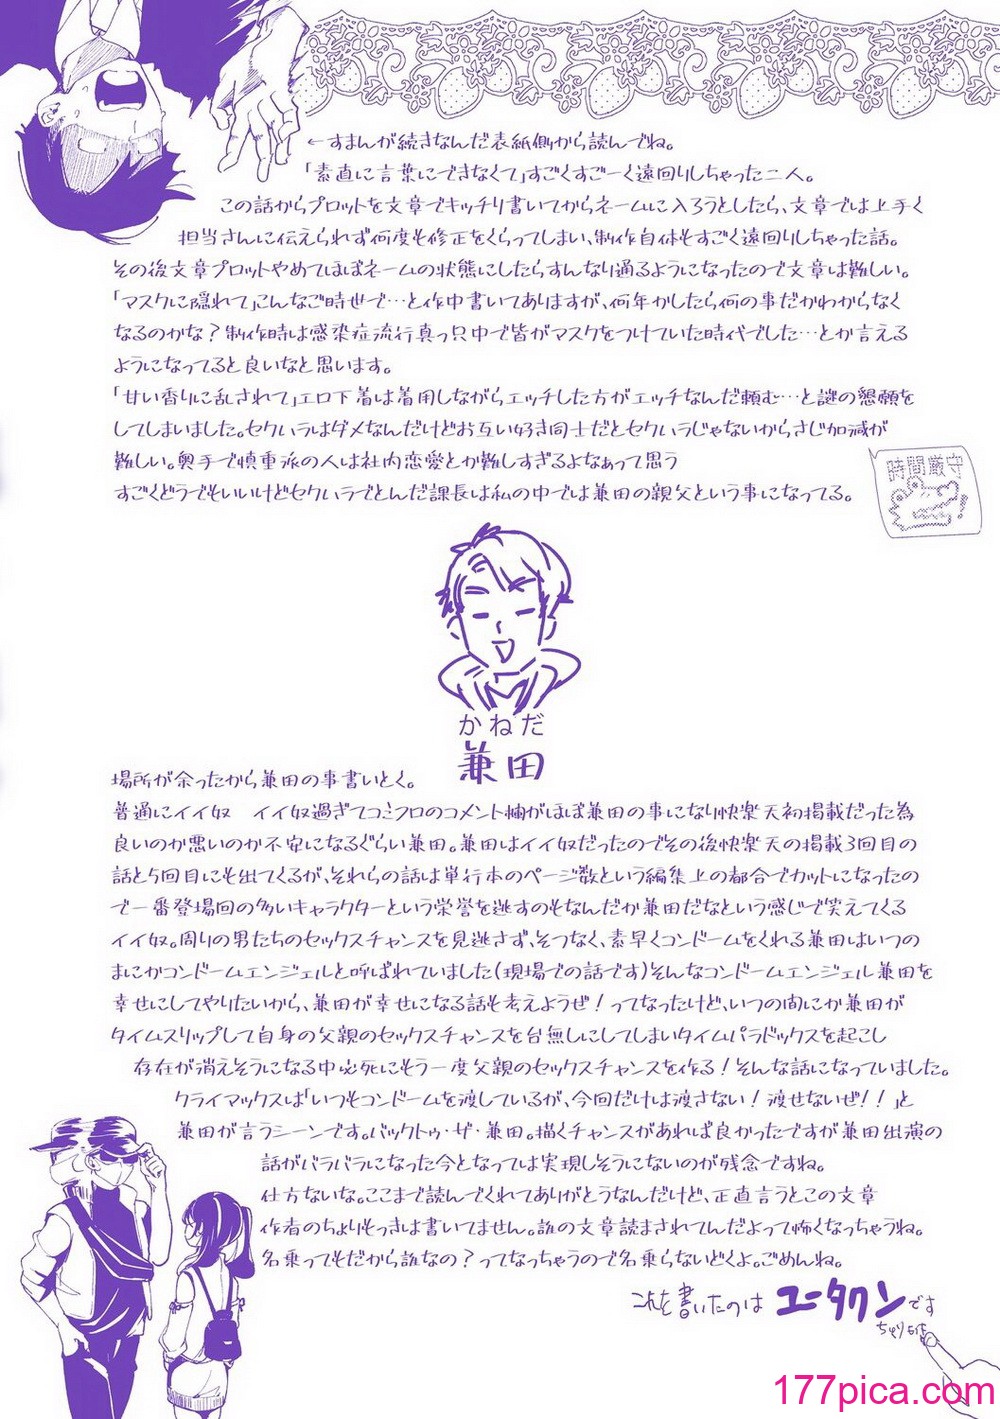 ←すまんが続きなんだ表紙側から読んでね。
「素直に言葉にできなくて」すごくすごーく遠回りしちゃった二人。
この話からプロットを文章でキッチリ書いてからネームに入ろうとしたら、文章では上手く
担当さんに伝えられず何度も修正をくらってしまい、制作自体もすごく遠回りしちゃった話。
その後文章プロットやめてほぼネームの状態にしたらすんなり通るようになったので文章は難しい。
「マスクに隠れて」こんなご時世で…と作中書いてありますが、何年かしたら何の事だかわからなく
なるのかな？制作時は感染症流行真っ只中で皆がマスクをつけていた時代でした…とか言える
ようになってると良いなと思います。
「甘い香りに乱されて」エロ下着は着用しながらエッチした方がエッチなんだ頼む…と謎の懇願を
してしまいました。セクハラはダメなんだけどお互い好き同士だとセクハラじゃないからさじ加減が
難しい。奥手で慎重派の人は社内恋愛とか難しすぎるよなぁって思う
すごくどうでもいいけどセクハラでとんだ課長は私の中では兼田の親父という事になってる。
時間厳守
かねだ
兼田
場所が余ったから兼田の事書いとく。
普通にイイ奴　イイ奴過ぎてコミフロのコメント欄がほぼ兼田の事になり快楽天初掲載だった為
良いのか悪いのか不安になるぐらい兼田。兼田はイイ奴だったのでその後快楽天の掲載3回目の
話と5回目にも出てくるが、それらの話は単行本のページ数という編集上の都合でカットになったの
で一番登場回の多いキャラクターという栄誉を逃すのもなんだか兼田だなという感じで笑えてくる
イイ奴。周りの男たちのセックスチャンスを見逃さず、そつなく、素早くコンドームをくれる兼田はいつの
まにかコンドームエンジェルと呼ばれていました(現場での話です)そんなコンドームエンジェル兼田を
幸せにしてやりたいから、兼田が幸せになる話も考えようぜ！ってなったけど、いつの間にか兼田が
タイムスリップして自身の父親のセックスチャンスを台無しにしてしまいタイムパラドックスを起こし
存在が消えそうになる中必死にもう一度父親のセックスチャンスを作る！そんな話になっていました。
クライマックスは「いつもコンドームを渡しているが、今回だけは渡さない！渡せないぜ！！」と
兼田が言うシーンです。バックトゥ・ザ・兼田。描くチャンスがあれば良かったですが兼田出演の
話がバラバラになった今となっては実現しそうにないのが残念ですね。
仕方ないな。ここまで読んでくれてありがとうなんだけど、正直言うとこの文章
作者のちょりもっきは書いてません。誰の文章読まされてんだよって怖くなっちゃうね。
名乗ってもだから誰なの？ってなっちゃうので名乗らないどくよ。ごめんね。
これを書いたのは ユータクン です
177pica.com